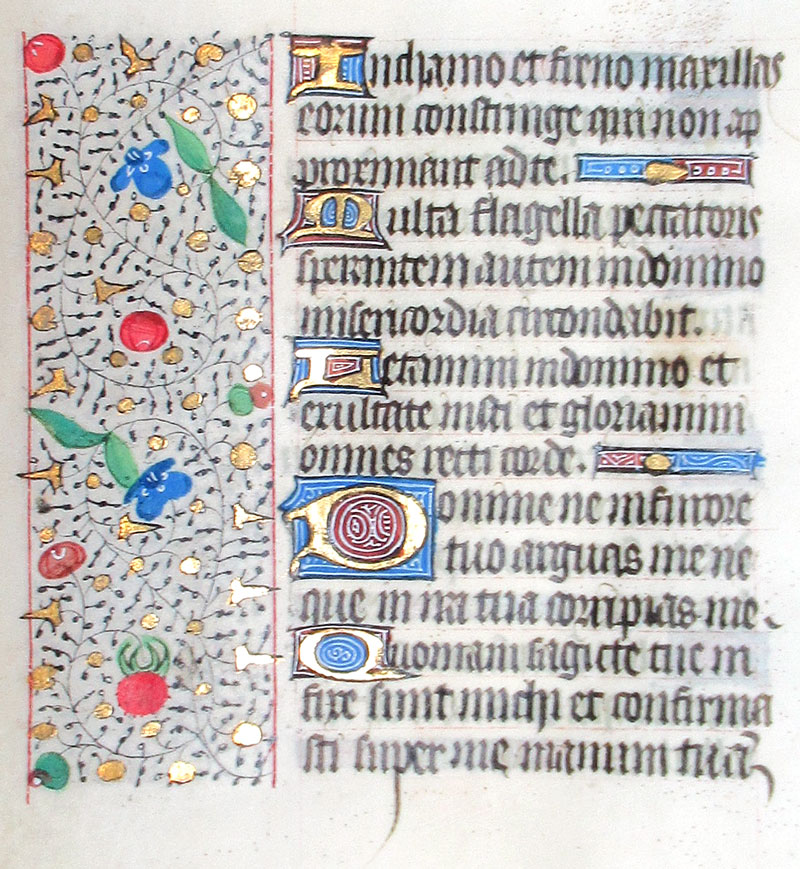 In chamo et freno maxillas
eorum constringe qui non ap
proximant ad te.
Multa flagella peccatoris
sperantem autem in domino
misericordia circondabit.
Letamini in domino et
exultate iusti et gloriamini
omnes recti corde.
Domine ne in furore
tuo arguas me ne
que in ira tua corripias me.
Quoniam sagicte tue in
fixe sunt michi et confirma
sti super me manum tuã